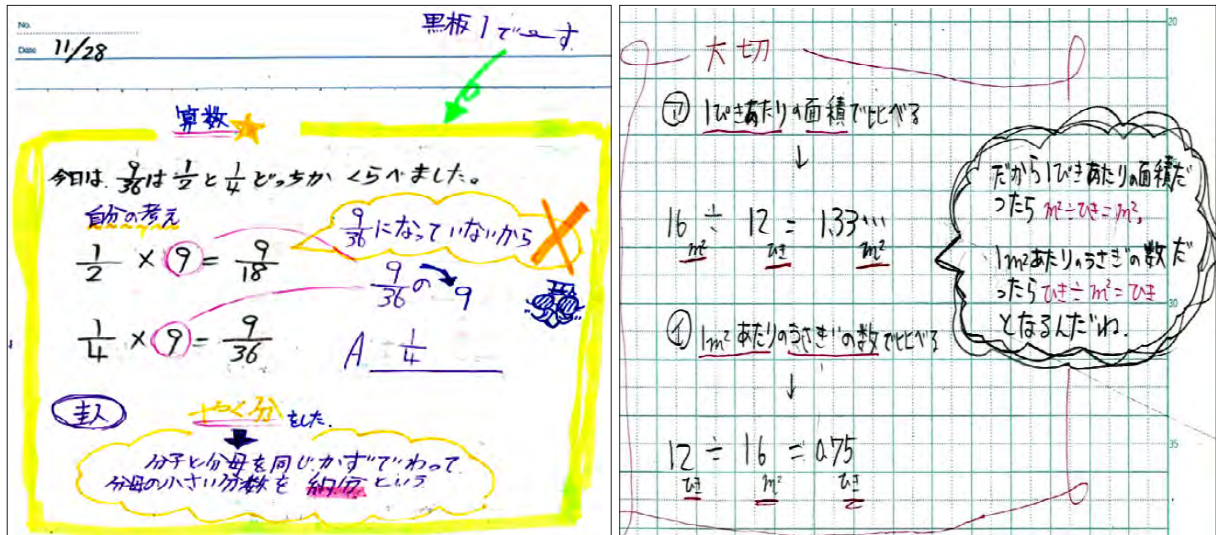 No.
Date 11/28
黒板1でーす
算数
今日は、9/36は1/2と1/4どっちか くらべました。
自分の考え
9/36になっていないから
1/2 × 9 = 9/18
9/36の 9
1/4 × 9 = 9/36
A 1/4
やく分をした。
分子と分母を同じかずでわって
分母の小さい分数を 約分という
20
大切
㋐ 1ぴきあたりの面積で比べる
↓
16 ÷ 12 = 1.33…
m² ひき m²
㋑ 1m²あたりのうさぎの数で比べる
↓
12 ÷ 16 = 0.75
ひき m² ひき
だから1ぴきあたりの面積だ
ったら m²÷ひき=m²,
1m²あたりのうさぎの数だ
ったら ひき÷m²=ひき
となるんだね.
30
35